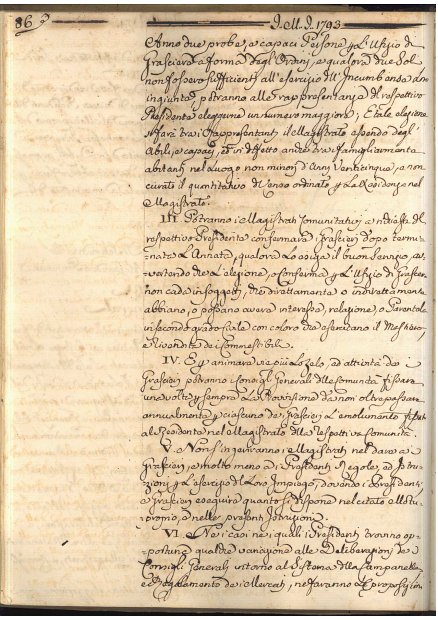 86
I. M. I. 1793
Anno due probe, e capaci Persone p l'Ufizio di
Grascieri a forma degl'Ordini, e qualora due Sol
non fossero sufficienti all'esercizio dll'Incumbenza an
ingiunta potranno alle rappresentanze dl respettivo
Presidente eleggerne un numero maggiore; E tale elezione
si farà tra i Rappresentanti il Magistrato essendo degl'
Abili, e capaci, ed in difetto anche tra i famigliarmente
abitanti nel Luogo non minori d'Anni Venticinque, e non
curato il quantitativo di Censo ordinato p la Residenza nel
Magistrato.
III. Potranno i Magistrati Comunitativi a richiesta dl
respettivo Presidente confermare i Grascieri dopo termi
nata l'Annata, qualora lo esige il buon servizio, av
vertendo che l'elezione, o conferma p l'Ufizio di Grascieri
non cada in soggetti, che direttamente o indirettamente
abbiano, o possano avere interesse, relazione, o Parentela
in secondo grado Civile con coloro che esercitano il Mestiero,
e Rivendita dei Commestibili.
IV. E p animare vie più lo zelo, ed attività dei
Grascieri potranno i Consigli Generali dlle Comunità fissare
una volta p sempre la Provvisione da non oltrepassare
annualmente p ciascuno dei Grascieri l'emolumento fissato
al Residente nel Magistrato dlla Respettiva Comunità.
V. Non s'ingeriranno i Magistrati nel dare ai
Grascieri, e molto meno ai Presidenti Regole, ed Istru
zioni p l'esercizio dl Loro Impiego, dovendo i Presidenti,
e Grascieri eseguire quanto si dispone nel citato Motu
proprio, e nelle presenti Istruzioni.
VI. Nei casi ne quali i Presidenti troveranno op
portuna qualche variazione alle Deliberazioni dei
Consigli Generali intorno al Sistema dlla Campanella
e Regolamento dei Mercati, ne faranno le proposizioni